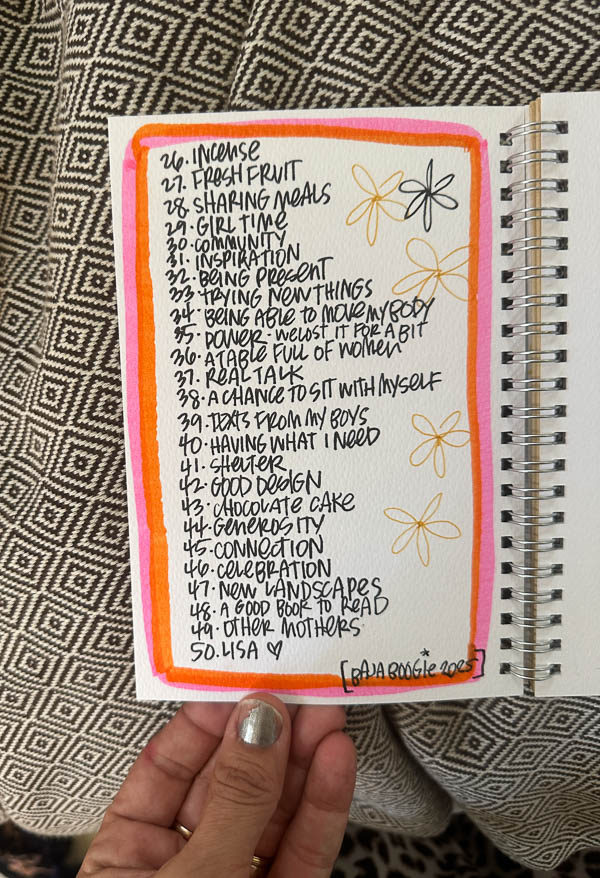 26. INCENSE
27. FRESH FRUIT
28. SHARING MEALS
29. GIRL TIME
30. COMMUNITY
31. INSPIRATION
32. BEING PRESENT
33. TRYING NEW THINGS
34. BEING ABLE TO MOVE MY BODY
35. POWER - WE LOST IT FOR A BIT
36. A TABLE FULL OF WOMEN
37. REAL TALK
38. A CHANCE TO SIT WITH MYSELF
39. TEXTS FROM MY BOYS
40. HAVING WHAT I NEED
41. SHELTER
42. GOOD DESIGN
43. CHOCOLATE CAKE
44. GENEROSITY
45. CONNECTION
46. CELEBRATION
47. NEW LANDSCAPES
48. A GOOD BOOK TO READ
49. OTHER MOTHERS
50. LISA ♡
[BAJA BOOGIE* 2025]